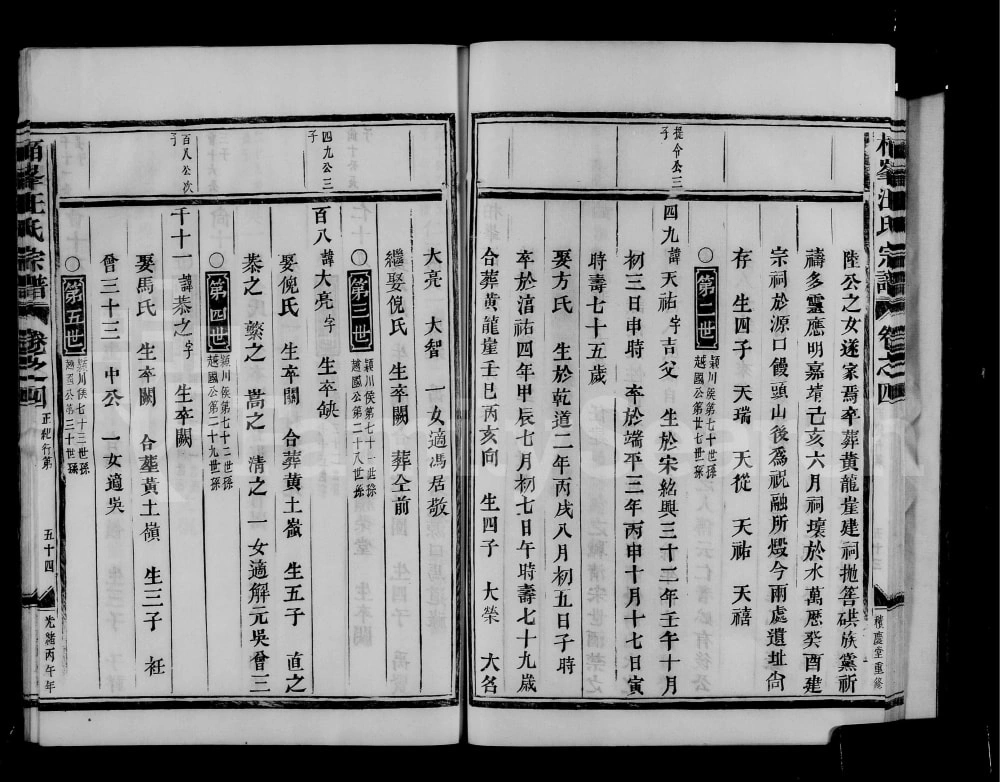 柏峯汪氏宗譜 卷之四
積慶堂重修
陸公之女遂家焉卒葬黃龍崖建祠拋筶硔族黨祈
禱多靈應明嘉靖己亥六月祠壞於水萬厯癸酉建
宗祠於源口饅頭山後為祝融所燬今兩處遺址尙
存 生四子 天瑞 天從 天祐 天禧
○第二世 潁川侯第七十世孫
越國公第廿七世孫
提令公三子
四九 諱天祐字吉父 生於宋紹興三十二年壬午十月
初三日申時 卒於端平三年丙申十月十七日寅
時壽七十五歲
娶方氏 生於乾道二年丙戌八月初五日子時
卒於淯祐四年甲辰七月初七日午時壽七十九歲
合葬黃龍崖壬巳丙亥向 生四子 大榮 大名
大亮 大智 一女適馮居敬
繼娶倪氏 生卒闕 葬仝前
○第三世 潁川侯第七十一世孫
越國公第二十八世孫
四九公三子
百八 諱大亮字 生卒缺
娶倪氏 生卒闕 合葬黃土嶺 生五子 直之
恭之 繁之 蒿之 清之 一女適解元吳曾三
○第四世 潁川侯第七十二世孫
越國公第二十九世孫
百八公次子
千十一 諱恭之字 生卒闕
娶馬氏 生卒闕 合塟黃土嶺 生三子 衽
曾三十三 中公 一女適吳
○第五世 潁川侯七十三世孫
越國公第三十世孫
柏峯汪氏宗譜 卷之四 正紀行第 五十四 光緒丙午年